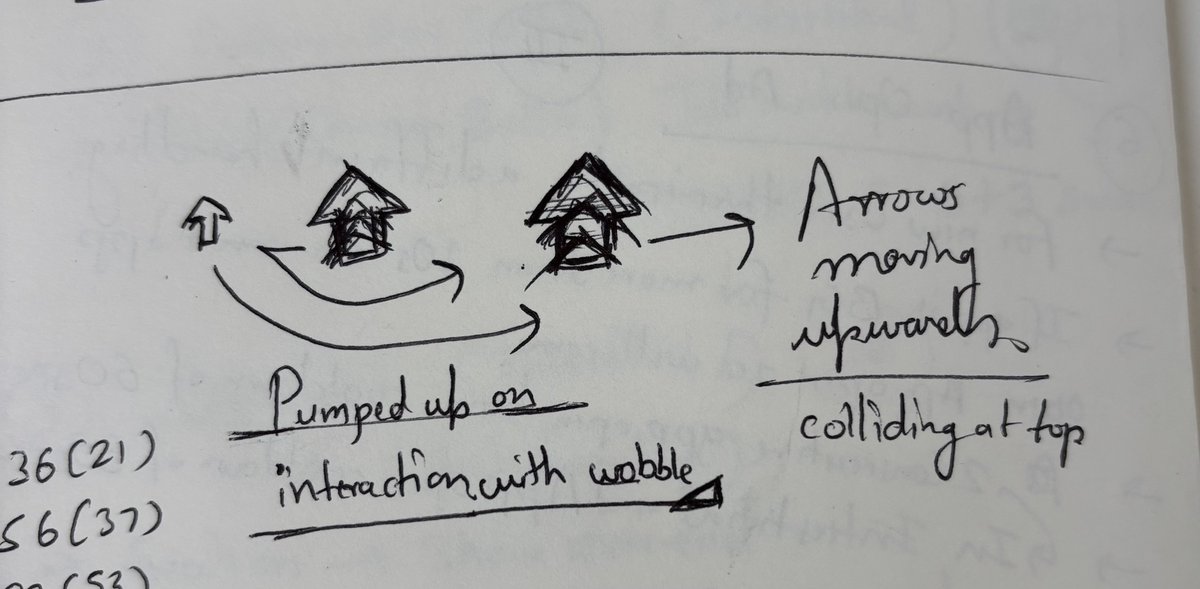 Arrows
moving
upwards
colliding at top
Pumped up on
interaction with wobble
36(21)
56(37)
(53)